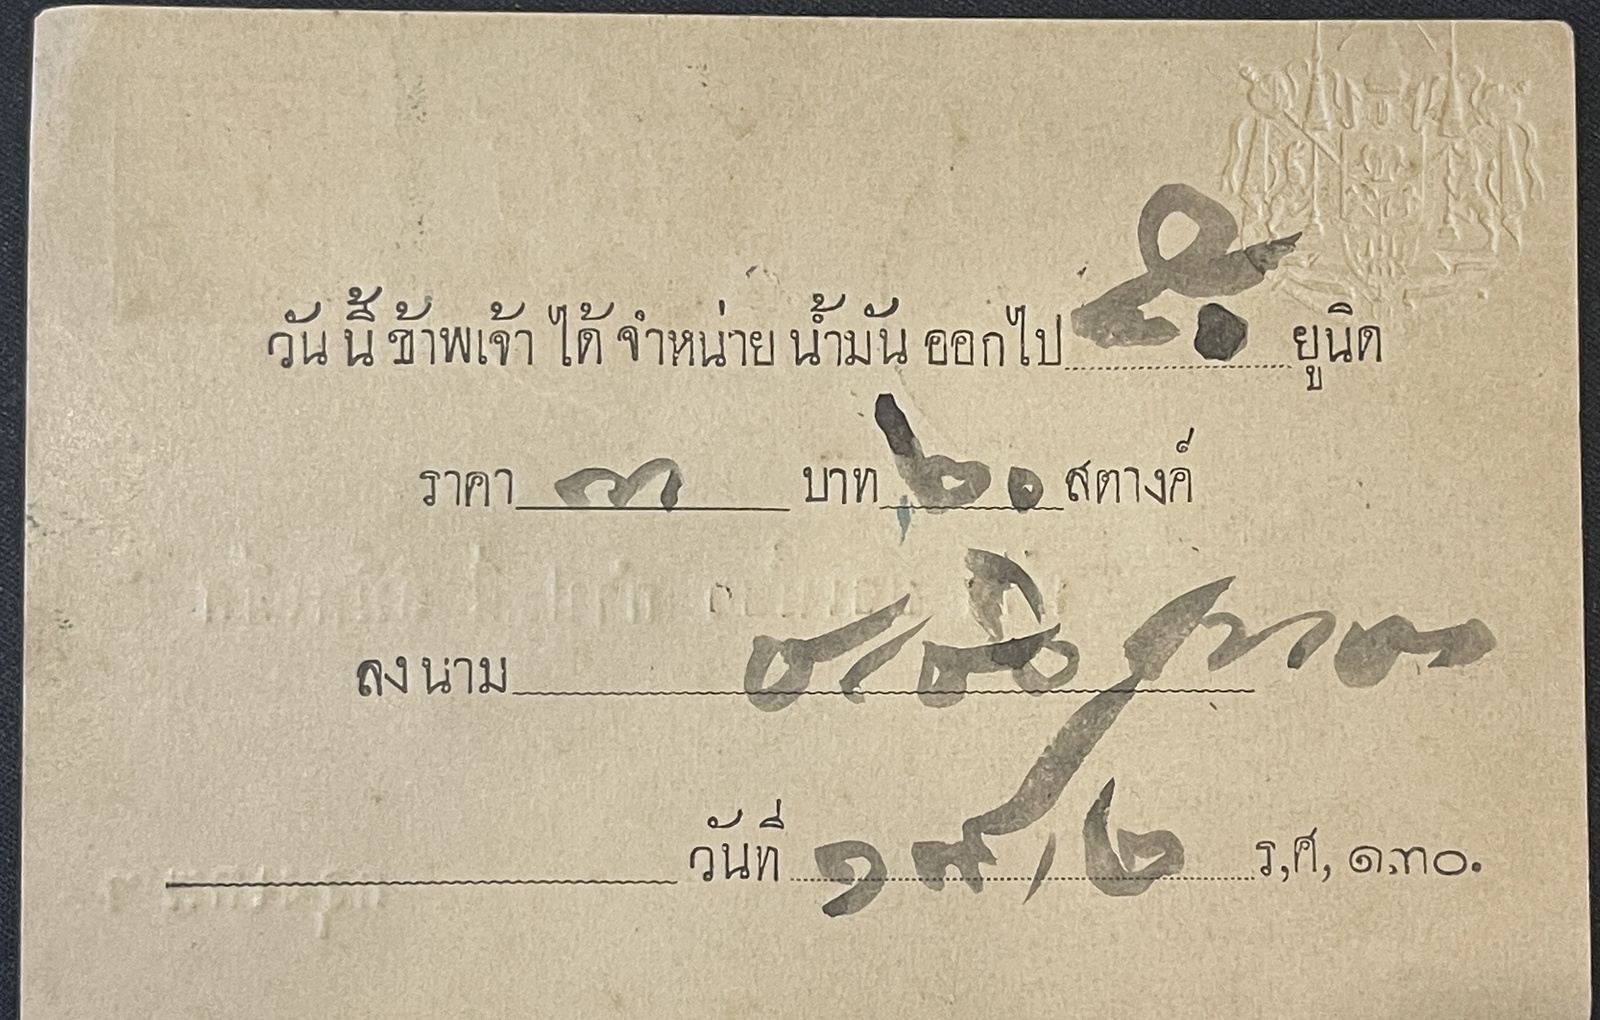 วัน นี้ ข้าพเจ้า ได้ จำหน่าย น้ำมัน ออกไป ยูนิต
ราคา ๓ บาท ๖๐ สตางค์
ลงนาม
วันที่ ๑๙/๒ ร,ศ, ๑๓๐.